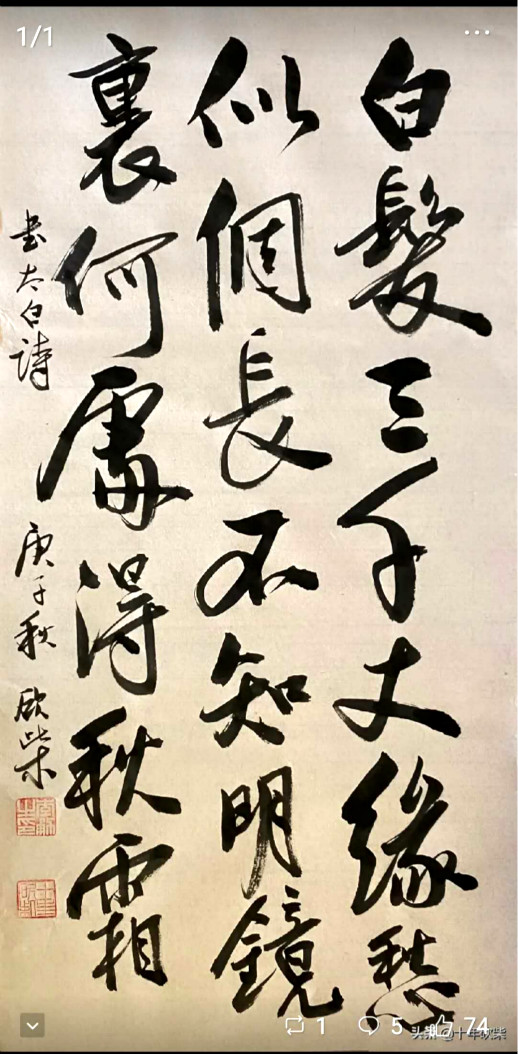 白髮三千丈緣愁
似個長不知明鏡
裏何處得秋霜
書太白詩 庚子秋 欣柴
1/1
1
5
74